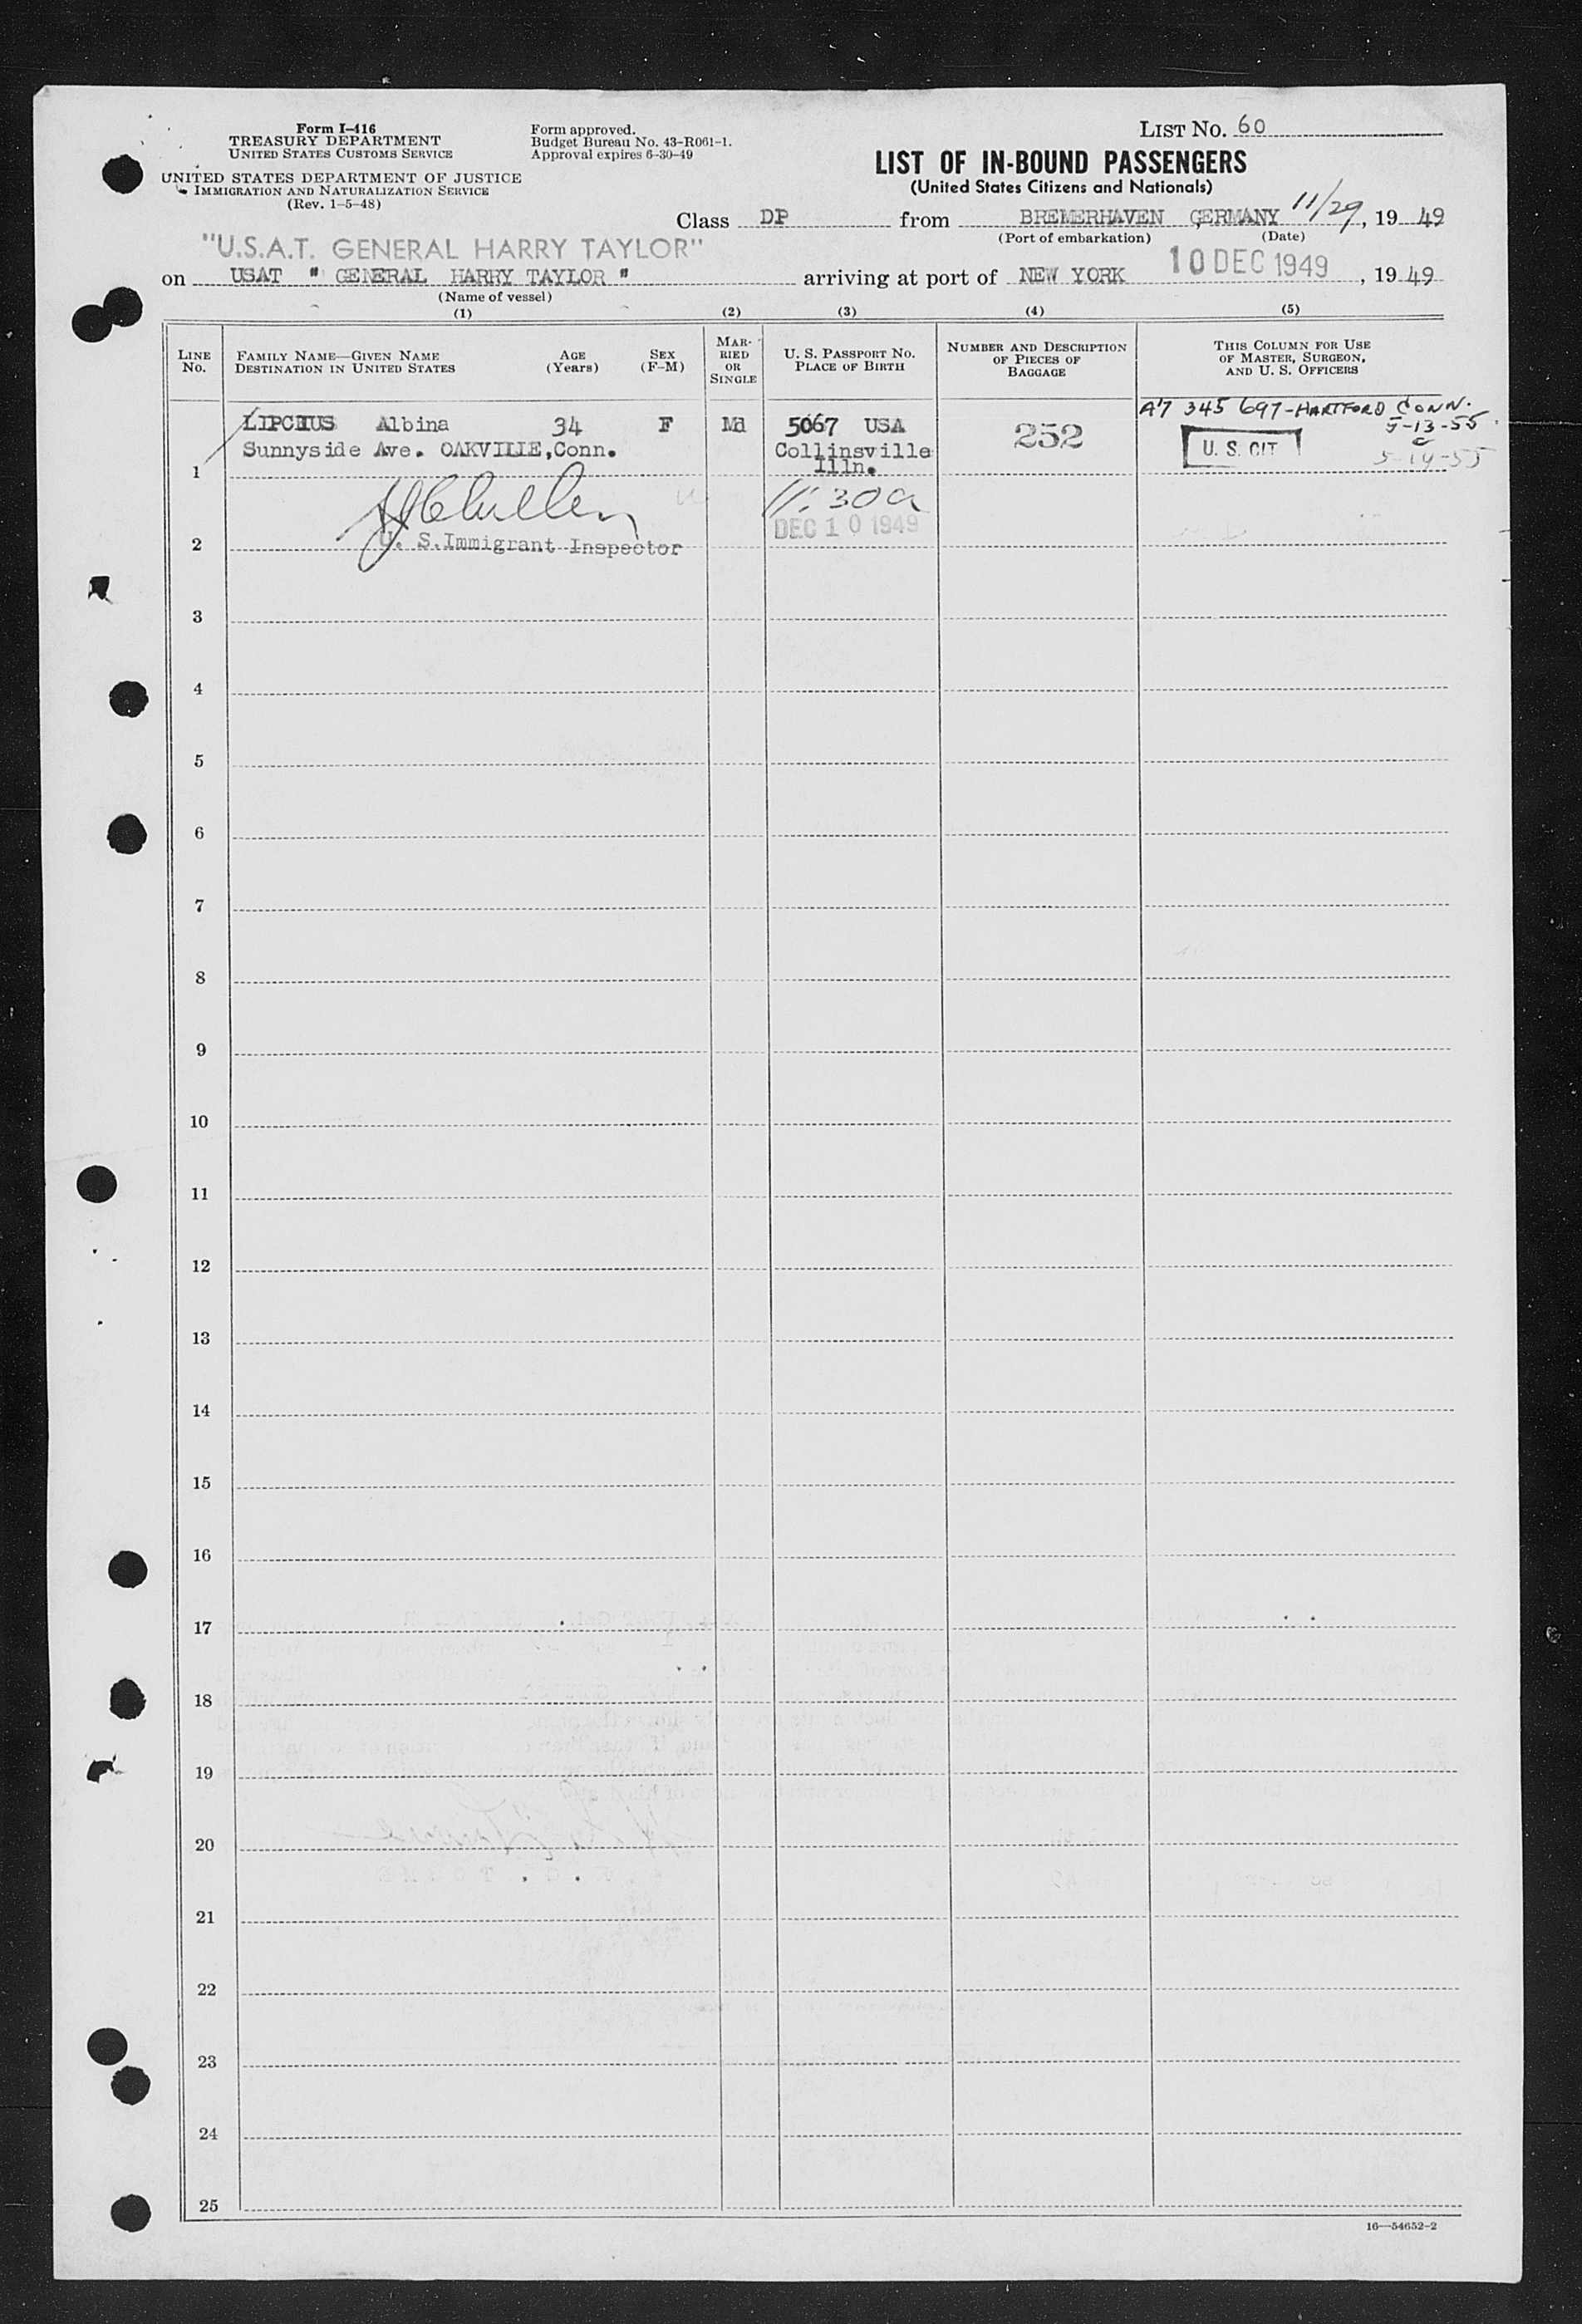 Form I-416
TREASURY DEPARTMENT
UNITED STATES CUSTOMS SERVICE
UNITED STATES DEPARTMENT OF JUSTICE
IMMIGRATION AND NATURALIZATION SERVICE
(Rev. 1-5-48)
Form approved.
Budget Bureau No. 43-R061-1.
Approval expires 6-30-49
LIST No. 60
LIST OF IN-BOUND PASSENGERS
(United States Citizens and Nationals)
Class DP from BREMERHAVEN, GERMANY 11/29, 19 49
(Port of embarkation) (Date)
"U.S.A.T. GENERAL HARRY TAYLOR"
on USAT " GENERAL HARRY TAYLOR " arriving at port of NEW YORK 10 DEC 1949, 19 49
(Name of vessel)
(1) (2) (3) (4) (5)
LINE No.
FAMILY NAME—GIVEN NAME
DESTINATION IN UNITED STATES
AGE (Years)
SEX (F-M)
MARRIED OR SINGLE
U. S. PASSPORT No.
PLACE OF BIRTH
NUMBER AND DESCRIPTION OF PIECES OF BAGGAGE
THIS COLUMN FOR USE OF MASTER, SURGEON, AND U. S. OFFICERS
A'7 345 697-HARTFORD CONN.
5-13-55
LIPCIUS Albina 34 F Md 5067 USA 252
Sunnyside Ave. OAKVILLE,Conn. Collinsville Illn. U. S. CIT 5-14-55
1
11:30a
DEC 10 1949
U. S.Immigrant Inspector
2
3
4
5
6
7
8
9
10
11
12
13
14
15
16
17
18
19
20
21
22
23
24
25
16—54652-2